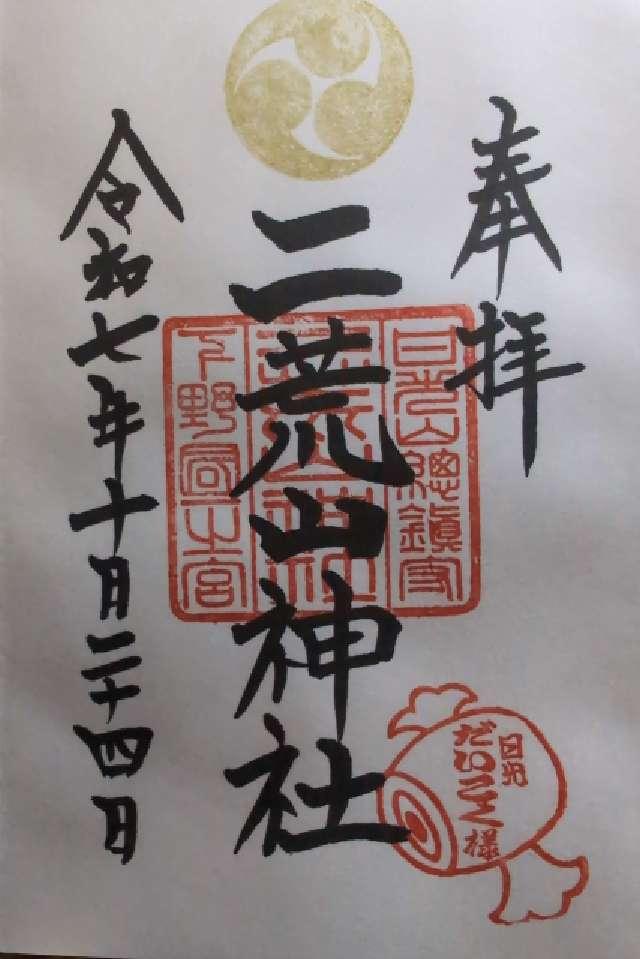 奉拝
日光山總鎮守
二荒山神社
下野國一之宮
令和七年十月二十四日
日光
だいこく様